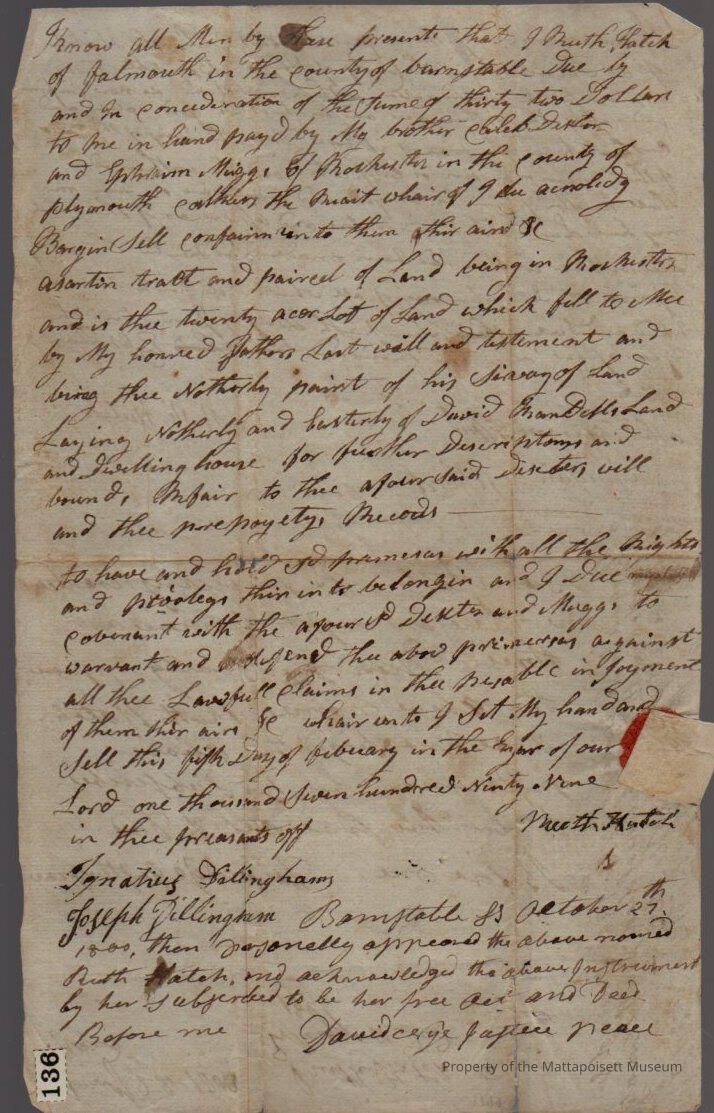 Know all Men by these presents that I Ruth Hatch
of falmouth in the county of barnstable Due by
and In concideration of the Sume of thirty two Dollars
to me in hand payd by My brother Caleb Dexter
and Ephraim Muggs of Rochester in the county of
plymouth the whairof I due acnolidg
Bargin Sell confairm unto them thir airs &c
a sartin tract and paircel of Land being in Rochester
and is thee twenty acor Lot of Land which fell to Mee
by My honred fathers Last will and testement and
being thee Notherly paint of his of Land
Laying Notherly and Easterly of David Land
and Dwelling house for further Descriptoms and
bounds Refair to thee afoursaid Dexters will
and thee Records
to have and hold sd premeses with all the Rights
and privelegs thirinto belongin and I Due
covenant with the afour sd Dexter and Muggs to
warrant and defend thee abov primerses against
all thee Lawfull claims in thee pesable in Joyment
of them thir airs &c whairunto I Set My hand and
Sell this fifth Day of febuary in the Eyar of our
Lord one thousand Seven hundred Ninty Nine
in thee preasants off
Ruth Hatch
Ignatius Dillingham
Joseph Dillingham Barnstable ss October 27th
1800, then personelly appeared the above named
Ruth Hatch, and acknowledged the above Instrument
by her subscribed to be her free act and Deed
Before me Justice peace
136
Property of the Mattapoisett Museum